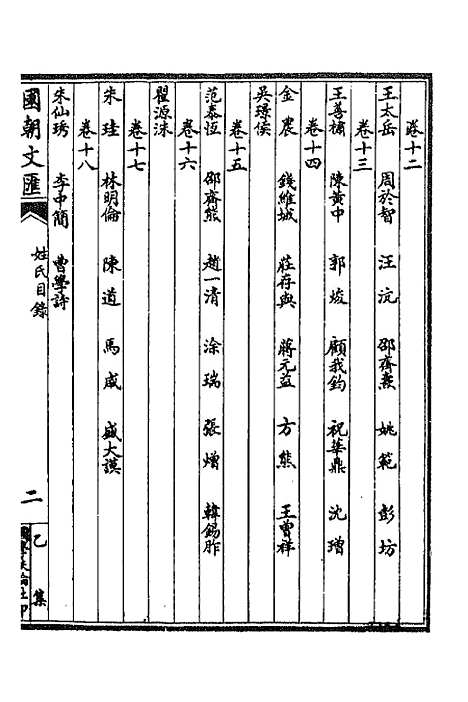 卷十二
王太岳 周於智 汪沆 邵齊燾 姚範 彭坊
卷十三
王善橚 陳黃中 郭焌 顧我錡 祝華鼎 沈璔
卷十四
金農 錢維城 莊存與 蔣元益 方熊 王曾祥
吳璟侯
卷十五
范泰恆 邵齊熊 趙一清 涂瑞 張熷 韓錫胙
卷十六
瞿源洙
卷十七
朱珪 林明倫 陳道 馬咸 盛大謨
卷十八
朱仙琇 李中簡 曹學詩
國朝文匯
姓氏目錄
二
乙集
國學扶輪社印